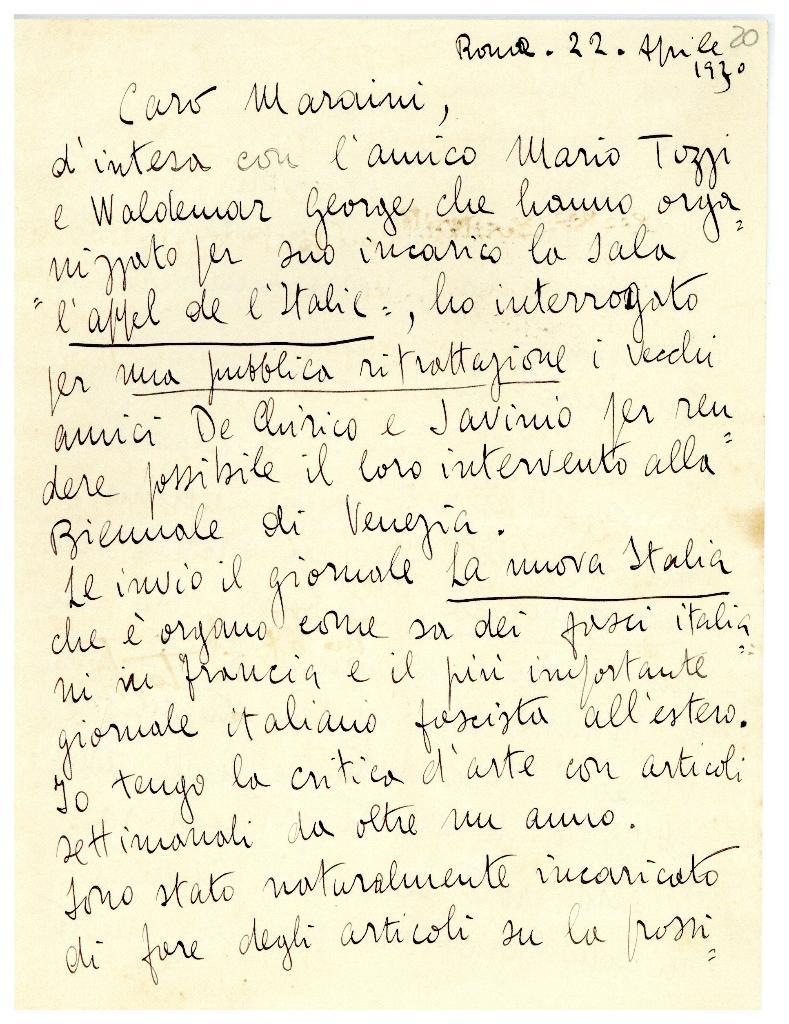 20
Roma. 22. Aprile
1930
Caro Maraini,
d'intesa con l'amico Mario Tozzi
e Waldemar George che hanno orga=
nizzato per suo incarico la Sala
"l'appel de l'Italie=, ho interrogato
per una pubblica ritrattazione i vecchi
amici De Chirico e Savinio per ren=
dere possibile il loro intervento alla
Biennale di Venezia.
Le invio il giornale La nuova Italia
che è organo come sa dei fasci italia=
ni in Francia e il più importante
giornale italiano fascista all'estero.
Io tengo la critica d'arte con articoli
settimanali da oltre un anno.
Sono stato naturalmente incaricato
di fare degli articoli su la prossi=